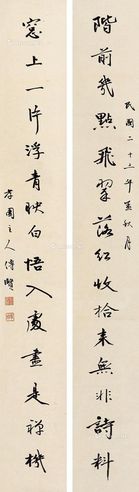 階前幾點飛翠落紅收拾來無非詩料
民國二十三年孟秋月
窓上一片浮青映白悟入處盡是禪機
主人傅